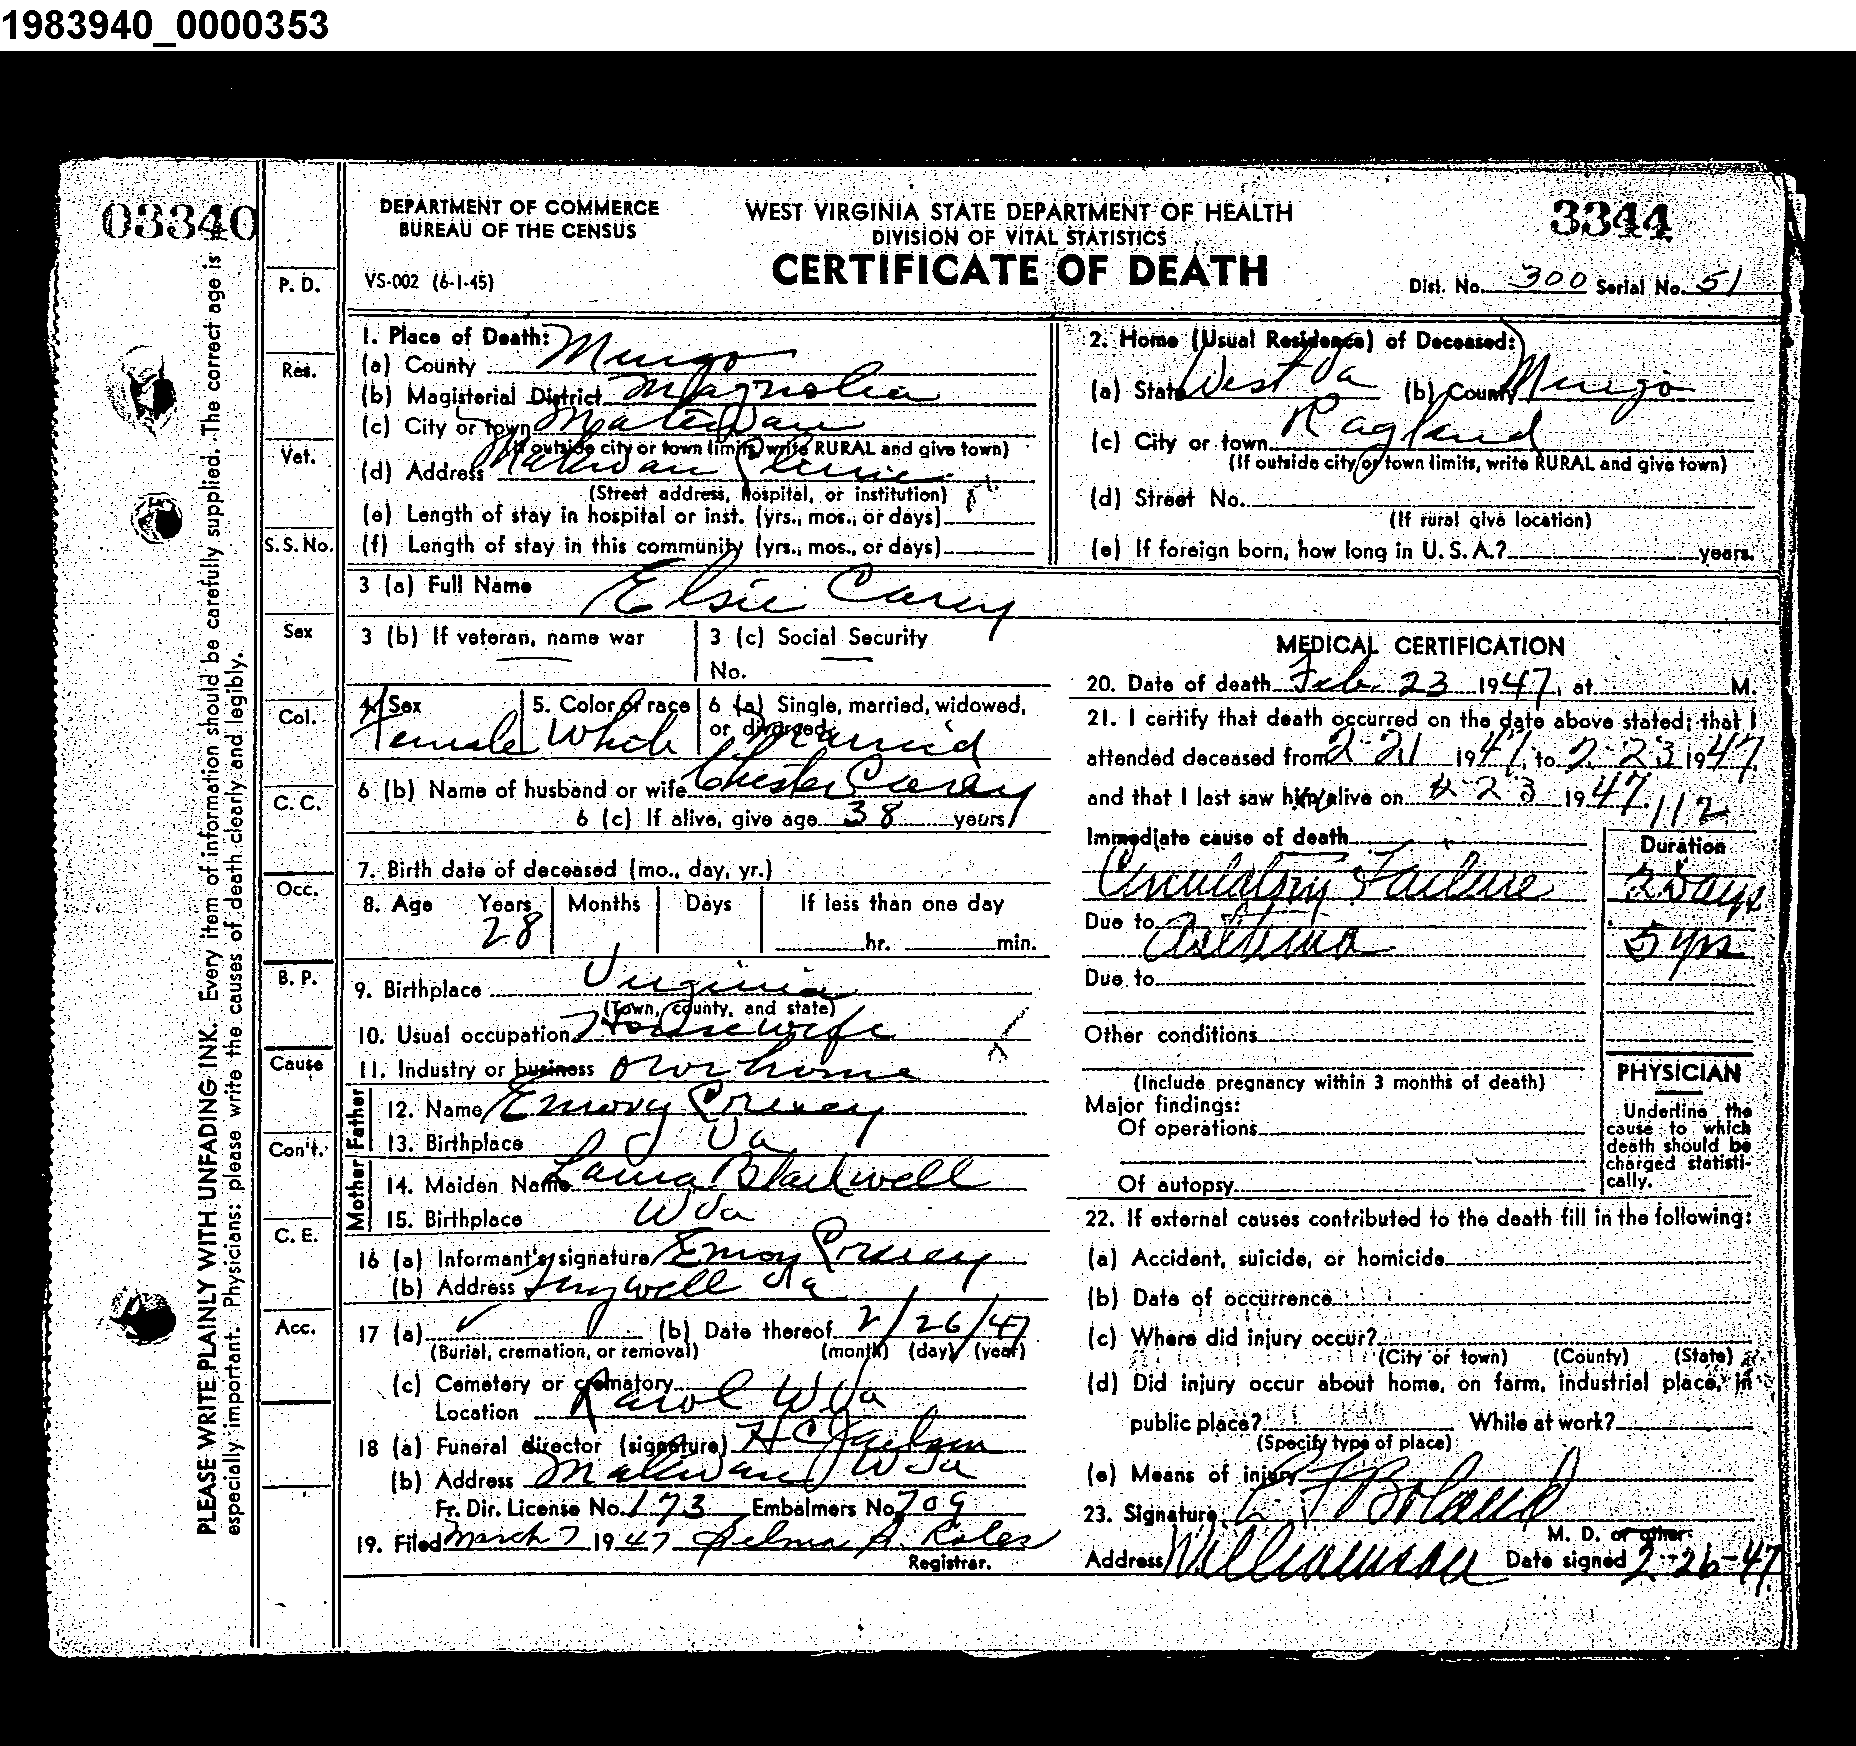 1983940_0000353
03340
DEPARTMENT OF COMMERCE
BUREAU OF THE CENSUS
VS-002 (6-1-45)
WEST VIRGINIA STATE DEPARTMENT OF HEALTH
DIVISION OF VITAL STATISTICS
CERTIFICATE OF DEATH
3344
Dist. No. 300 Serial No. 51
PLEASE WRITE PLAINLY WITH UNFADING INK. Every item of information should be carefully supplied. The correct age is
especially important. Physicians: please write the causes of death clearly and legibly.
P. D.
Res.
Vet.
S. S. No.
Sex
Col.
C. C.
Occ.
B. P.
Cause
Con't.
C. E.
Acc.
1. Place of Death:
(a) County Mingo
(b) Magisterial District Magnolia
(c) City or town Matewan
(If outside city or town limits, write RURAL and give town)
(d) Address Matewan Clinic
(Street address, hospital, or institution)
(e) Length of stay in hospital or inst. (yrs., mos., or days)
(f) Length of stay in this community (yrs., mos., or days)
2. Home (Usual Residence) of Deceased:
(a) State West Va (b) County Mingo
(c) City or town Ragland
(If outside city or town limits, write RURAL and give town)
(d) Street No.
(If rural give location)
(e) If foreign born, how long in U. S. A.? years.
3 (a) Full Name Elsie Carey
3 (b) If veteran, name war
3 (c) Social Security
No.
4. Sex Female
5. Color of race White
6 (a) Single, married, widowed,
or divorced Married
6 (b) Name of husband or wife Chester Carey
6 (c) If alive, give age 38 years
7. Birth date of deceased (mo., day, yr.)
8. Age Years Months Days If less than one day
28 hr. min.
9. Birthplace Virginia
(Town, county, and state)
10. Usual occupation Housewife
11. Industry or business own home
Father
12. Name Emory
13. Birthplace Va
Mother
14. Maiden Name Laura Blackwell
15. Birthplace W Va
16 (a) Informant's signature Emory
(b) Address Va
17 (a) (b) Date thereof 2/26/47
(Burial, cremation, or removal) (month) (day) (year)
(c) Cemetery or crematory
Location W Va
18 (a) Funeral director (signature) H C
(b) Address Matewan W Va
Fr. Dir. License No. 173 Embalmers No. 709
19. Filed March 7 1947
Registrar.
MEDICAL CERTIFICATION
20. Date of death Feb. 23 1947, at M.
21. I certify that death occurred on the date above stated; that I
attended deceased from 2-21 1947, to 2-23 1947
and that I last saw him alive on 2-23 1947
112
Immediate cause of death Duration
Circulatory Failure 2 Days
Due to Asthma 5 yrs
Due to
Other conditions
(Include pregnancy within 3 months of death)
Major findings:
Of operations
Of autopsy
PHYSICIAN
Underline the
cause to which
death should be
charged statisti-
cally.
22. If external causes contributed to the death fill in the following:
(a) Accident, suicide, or homicide
(b) Date of occurrence
(c) Where did injury occur?
(City or town) (County) (State)
(d) Did injury occur about home, on farm, industrial place, in
public place? While at work?
(Specify type of place)
(e) Means of injury
23. Signature Boland
M. D. or other
Address Williamson Date signed 2-26-47